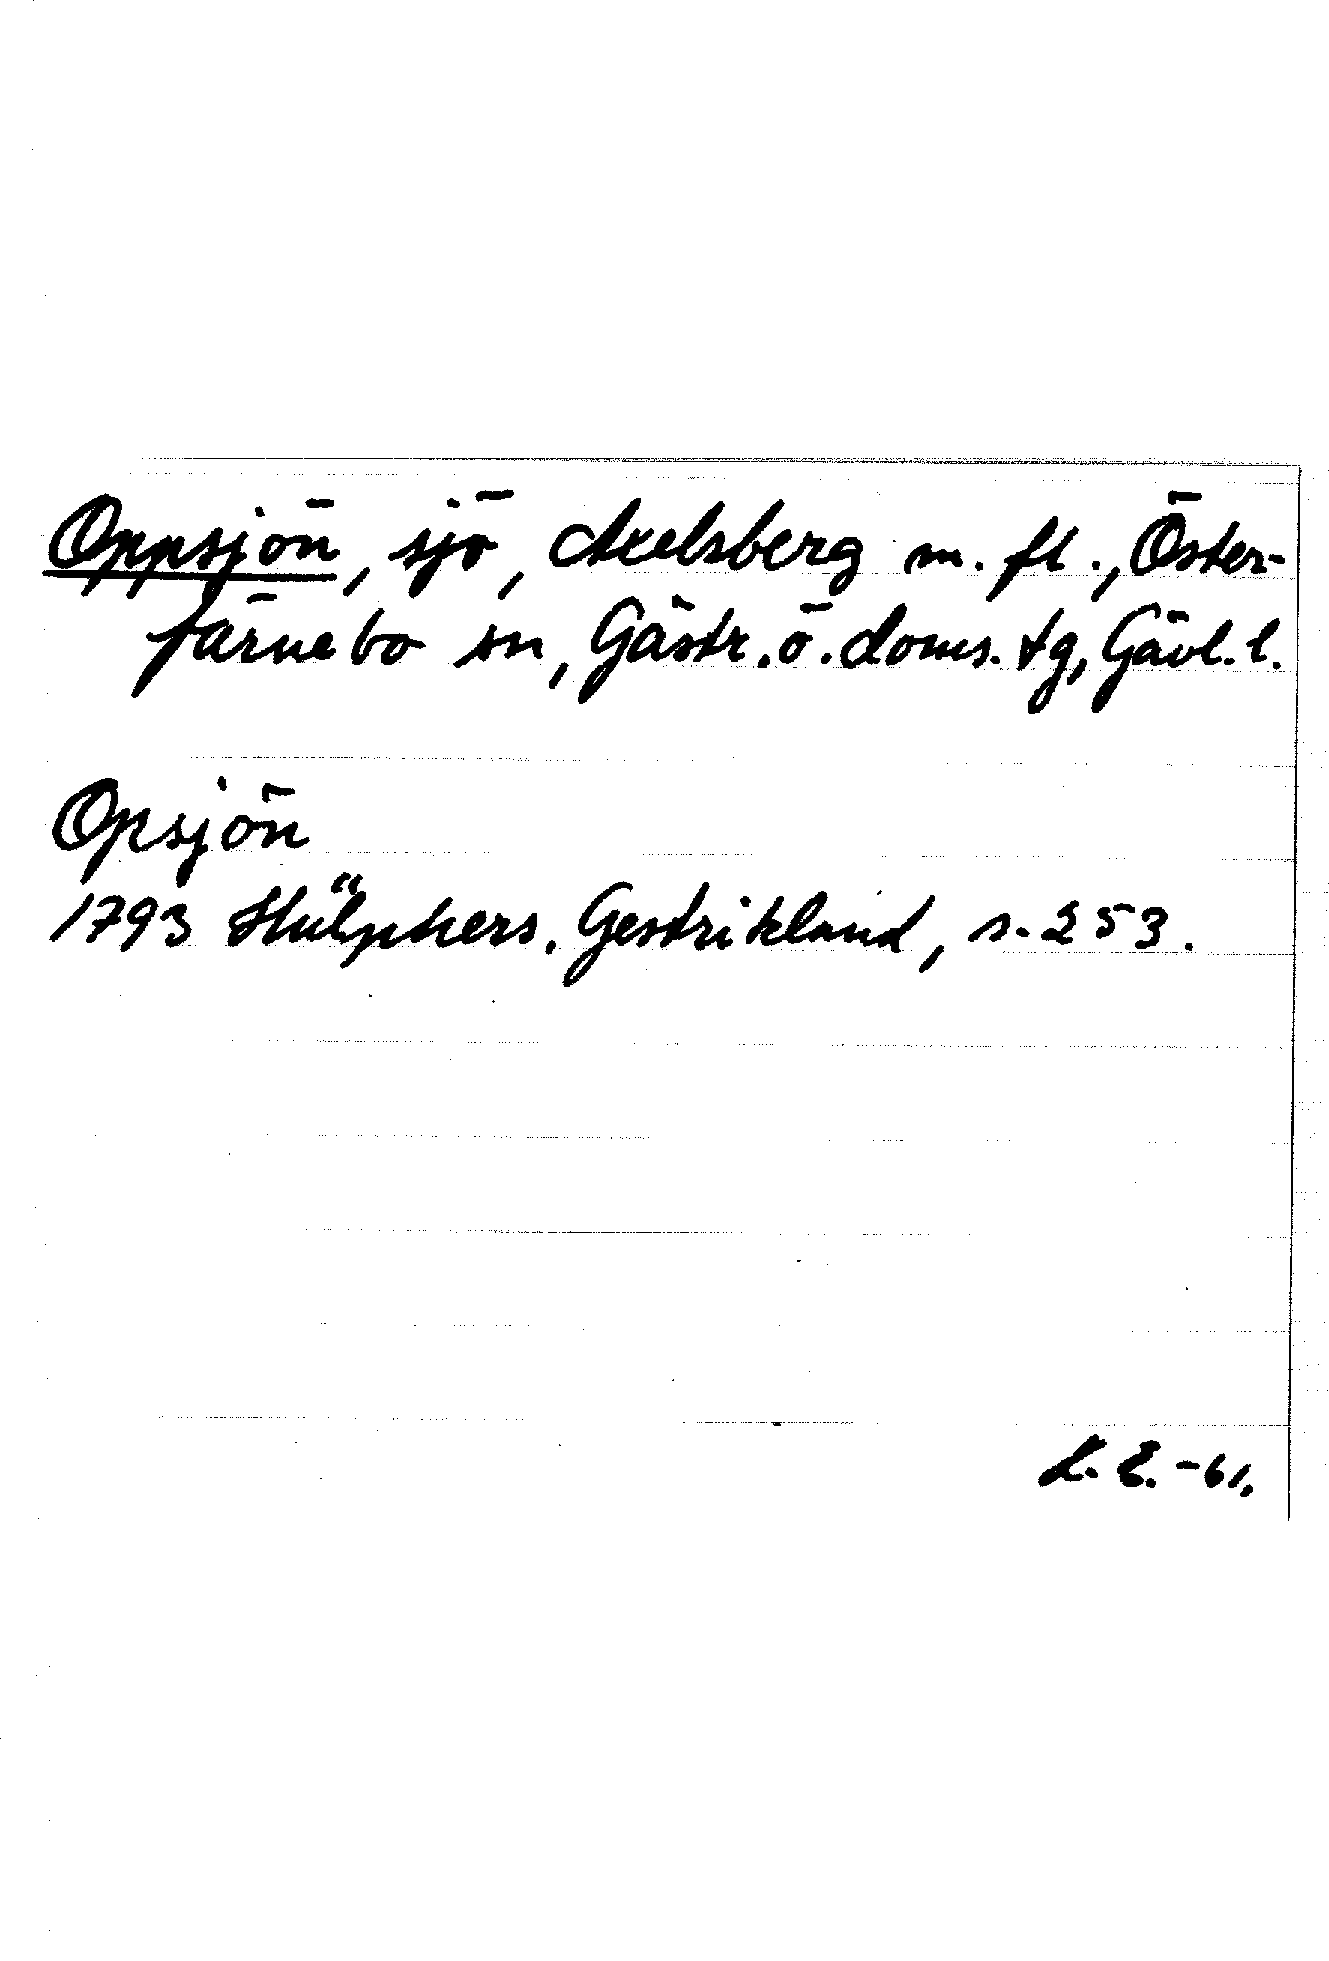 Oppsjön, sjö, Axelsberg m. fl., Öster-
färnebo sn, Gästr. ö. doms. tg, Gävl. l.
Opsjön
1793 Hülphers. Gestrikland, s. 253.
L. E. -61.